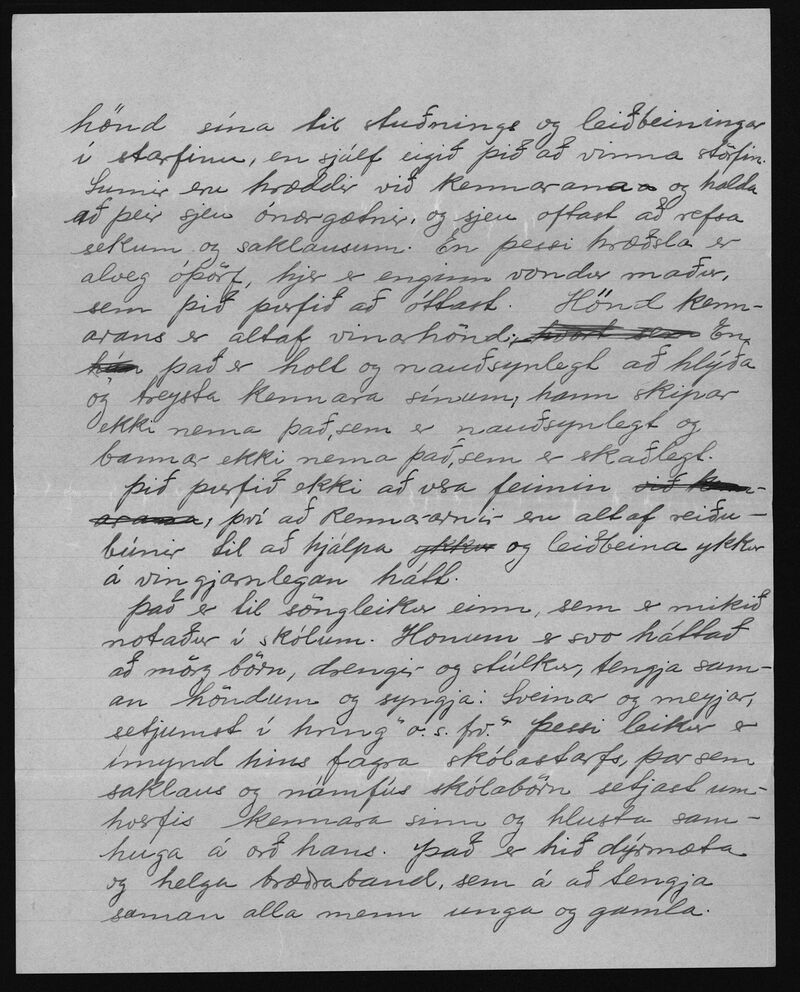 hönd sína til stuðnings og leiðbeiningar
í starfinu, en sjálf eigið þið að vinna störfin.
Sumir eru hræddir við kennarana og halda
að þeir sjeu ónærgætnir, og sjeu oftast að refsa
sekum og saklausum. En þessi hræðsla er
alveg óþörf, hjer er enginn vondur maður,
sem þið þurfið að óttast. Hönd kenn-
arans er altaf vinarhönd; hvort sem En
hán það er holt og nauðsynlegt að hlýða
og treysta kennara sínum, hann skipar
ekki nema það, sem er nauðsynlegt og
bannar ekki nema það, sem er skaðlegt.
Þið þurfið ekki að vera feimin við kenn-
arana, því að kennararnir eru altaf reiðu-
búnir til að hjálpa ykkur og leiðbeina ykkur
á vingjarnlegan hátt.
Það er til söngleikur einn, sem er mikið
notaður í skólum. Honum er svo háttað
að mörg börn, drengir og stúlkur, tengja sam-
an höndum og syngja: Sveinar og meyjar,
setjumst í hring" o.s.frv." Þessi leikur er
ímynd hins fagra skólastarfs, þar sem
saklaus og námfús skólabörn setjast um-
hverfis kennara sinn og hlusta sam-
huga á orð hans. Það er hið dýrmæta
og helga bræðraband, sem á að tengja
saman alla menn unga og gamla.